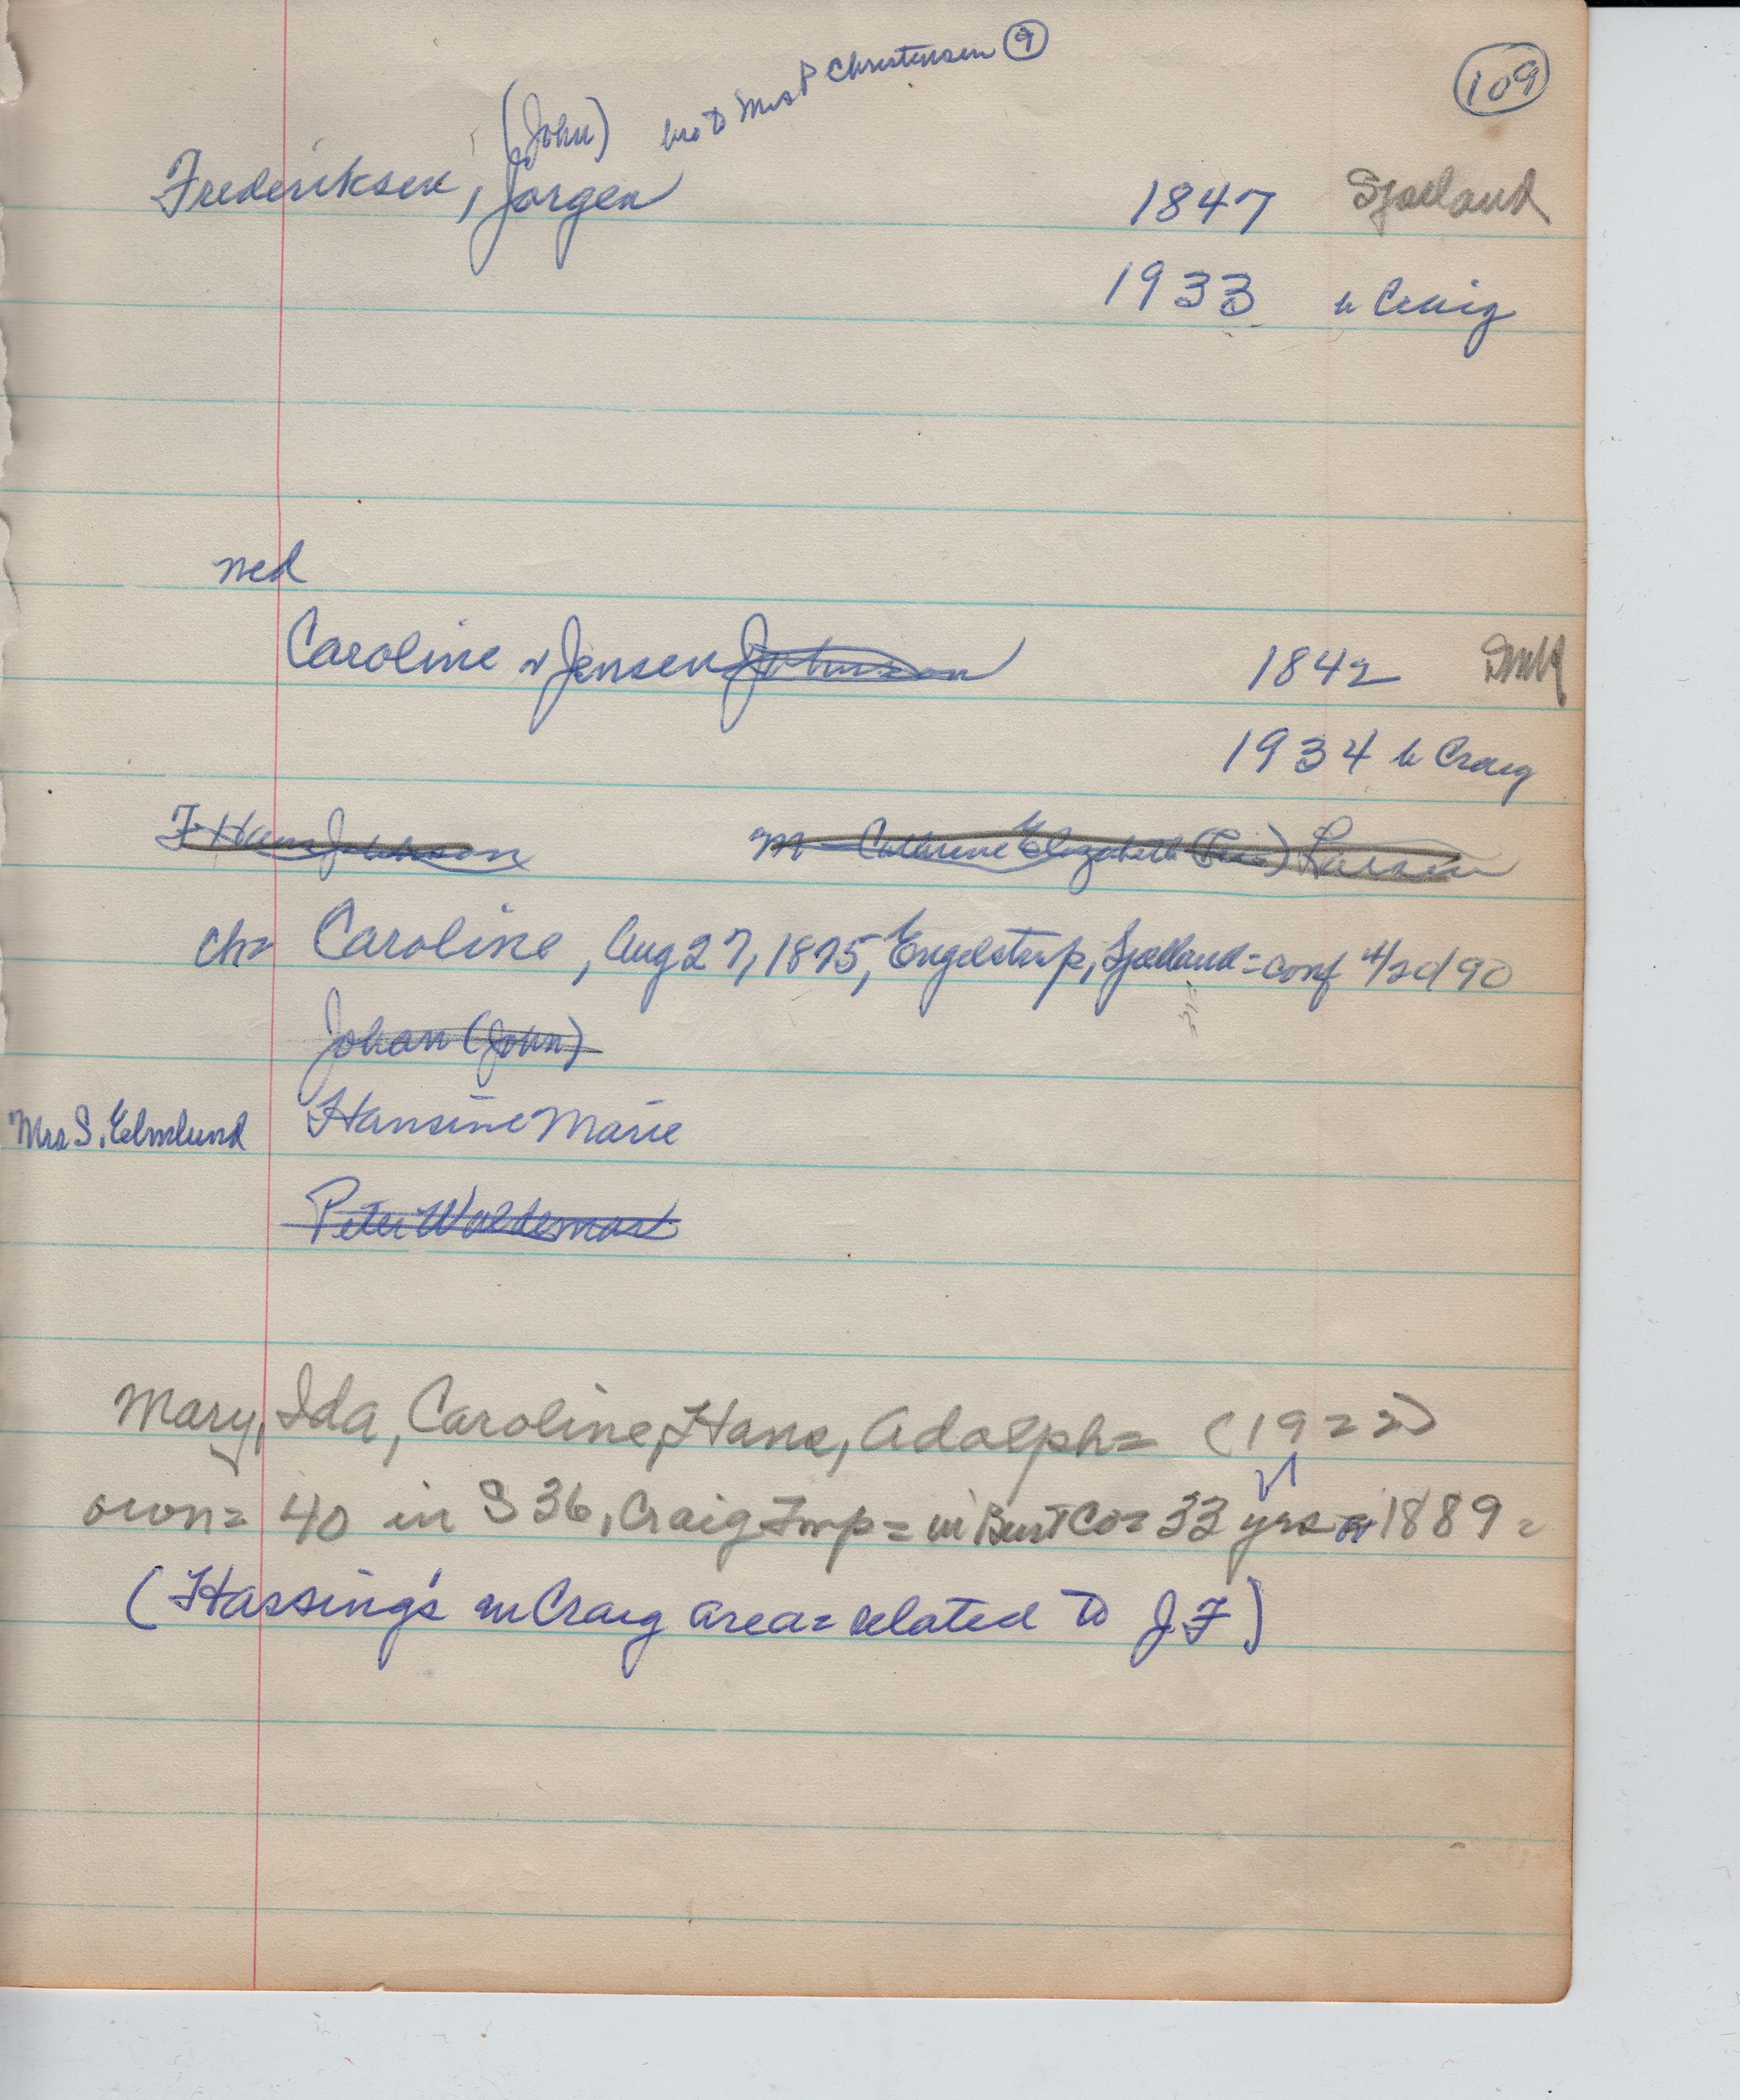 109
(John) bro to Mrs P Christensen 9
Frederiksen, Jorgen 1847 Sjaelland
1933 b Craig
med
Caroline n Jensen Johnson 1842 Dmk
1934 b Craig
F Hans Johnson M - Cathrine Elizabeth Larsen
ch= Caroline, Aug 27, 1875, Engelstrup, Sjaelland = conf 4/20/90
Johan (John)
Mrs S. Elmlund Hansine Marie
Peter Waldemar
Mary, Ida, Caroline, Hans, Adolph = (1922)
own = 40 in S 36, Craig Twp = in Burt Co = 33 yrs or 1889 =
(Hassing's in Craig area = related to J.F)